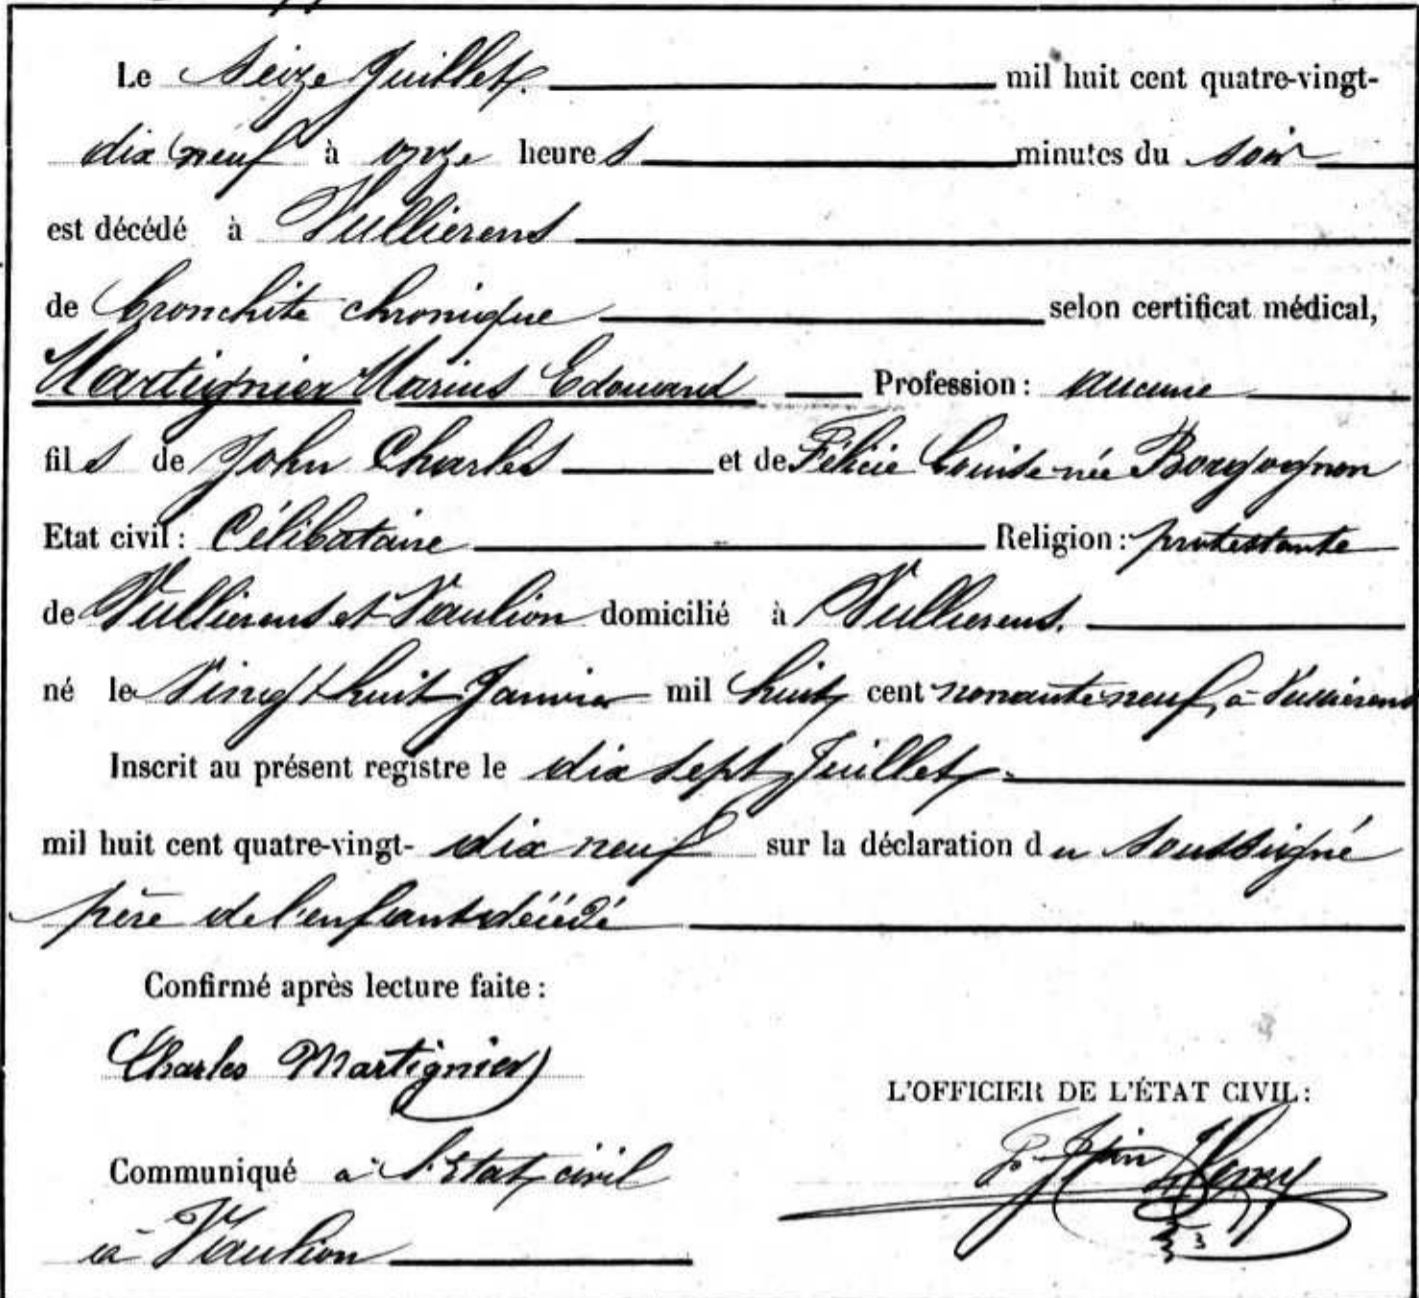 Le Seize Juillet. mil huit cent quatre-vingt-
dix neuf à onze heures minutes du soir
est décédé à Vullierens
de bronchite chronique selon certificat médical,
Martignier Marius Edouard Profession: aucune
fils de John Charles et de Félicie Louise née Borgognon
Etat civil: Célibataire Religion: protestante
de Vullierens et Vaulion domicilié à Vullierens.
né le Vingt huit Janvier mil huit cent nonante neuf, à Vullierens
Inscrit au présent registre le dix sept Juillet
mil huit cent quatre-vingt- dix neuf sur la déclaration du soussigné
père de l'enfant décédé
Confirmé après lecture faite:
Charles Martignier
L'OFFICIER DE L'ÉTAT CIVIL:
Communiqué à l'Etat civil
à Vaulion